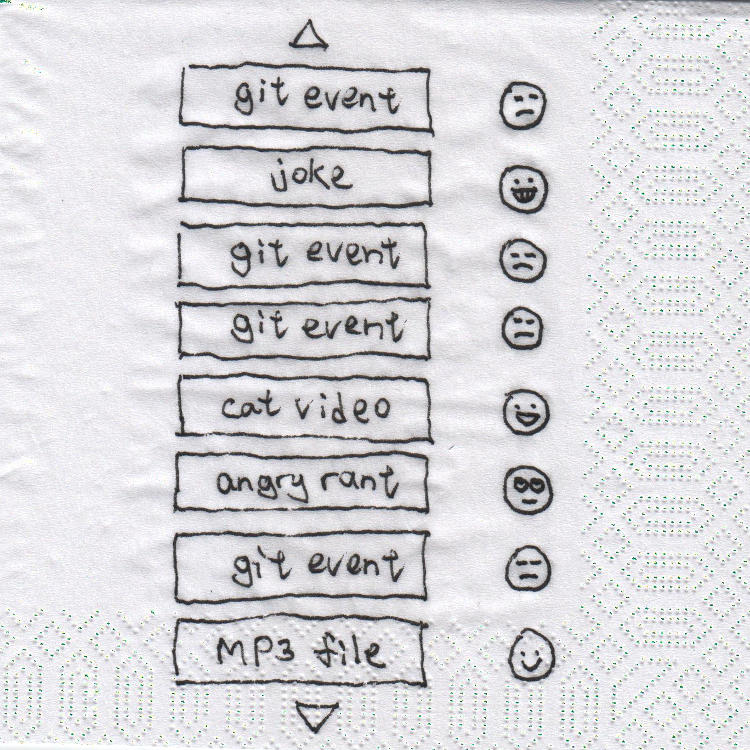 git event
joke
git event
git event
cat video
angry rant
git event
MP3 file